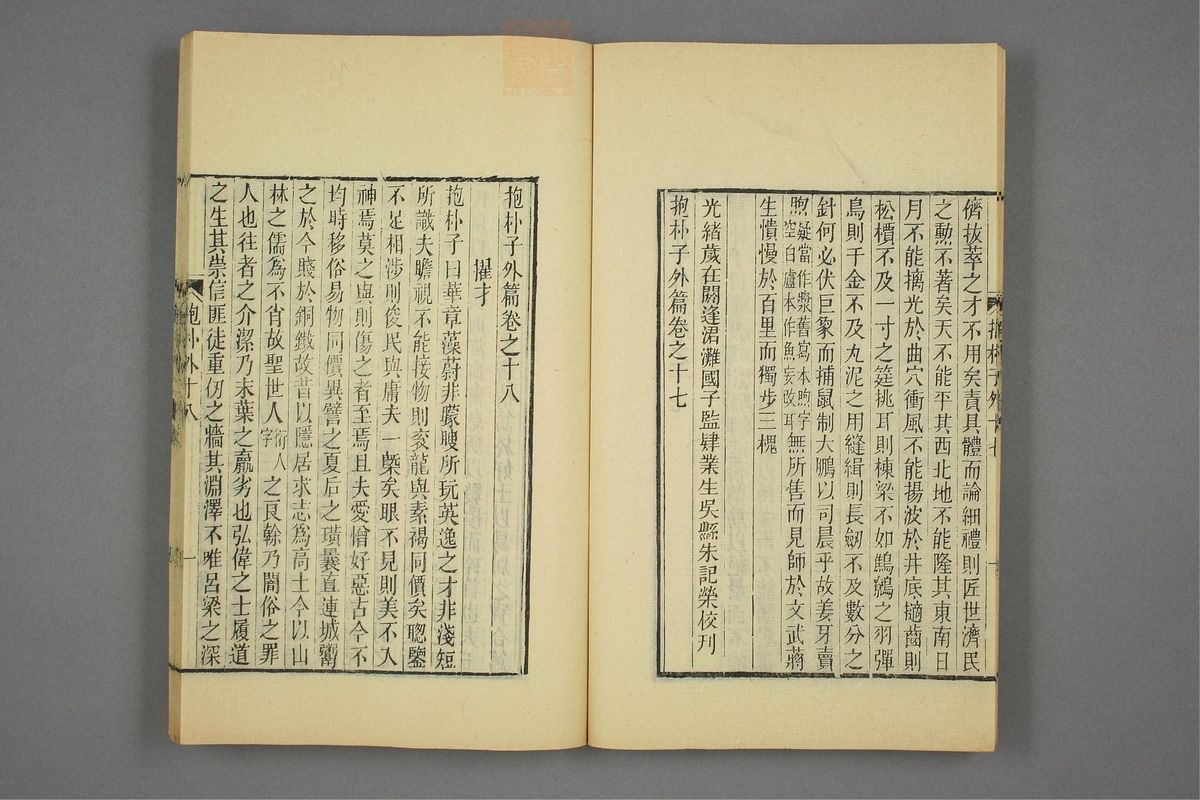 儕拔萃之才不用矣責具體而論細禮則匠世濟民
之勲不著矣天不能平其西北地不能隆其東南日
月不能摛光於曲穴衝風不能揚波於井底擿齒則
松檟不及一寸之筳挑耳則棟梁不如鷦鷯之羽彈
鳥則千金不及丸泥之用縫緝則長劒不及數分之
針何必伏巨象而捕鼠制大鵬以司晨乎故姜牙賣
煦疑當作漿舊寫本煦字空白盧本作魚妄改耳無所售而見師於文武蔣
生憒慢於百里而獨步三槐
光緒歲在閼逢涒灘國子監肄業生吳縣朱記榮校刊
抱朴子外篇卷之十七
抱朴子外篇卷之十八
擢才
抱朴子曰華章藻蔚非矇瞍所玩英逸之才非淺短
所識夫瞻視不能接物則衮龍與素褐同價矣聰鑒
不足相涉則俊民與庸夫一槩矣眼不見則美不入
神焉莫之與則傷之者至焉且夫愛憎好惡古今不
均時移俗易物同價異譬之夏后之璜曩直連城鬻
之於今賤於銅鐵故昔以隱居求志爲高士今以山
林之儒爲不肖故聖世人衍人字之良幹乃闇俗之罪
人也往者之介潔乃末葉之羸劣也弘偉之士履道
之生其崇信匪徒重仞之牆其淵澤不唯呂梁之深
抱朴外十八
一